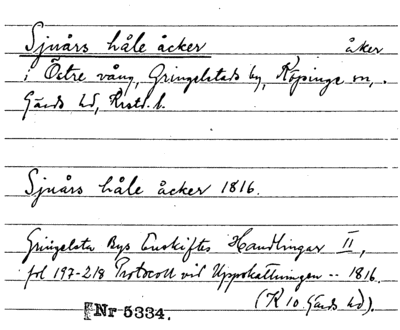 Sjuårs håle åcker åker
i Östre vång, Gringelstads by, Köpinge sn,
Gärds hd, Krstd. l.
Sjuårs håle åcker 1816.
Gringelsta Bys Enskiftes Handlingar II,
fol 197-218 Protocoll vid Uppskattningen -- 1816.
(K 10 Gärds hd).
Nr 5334.